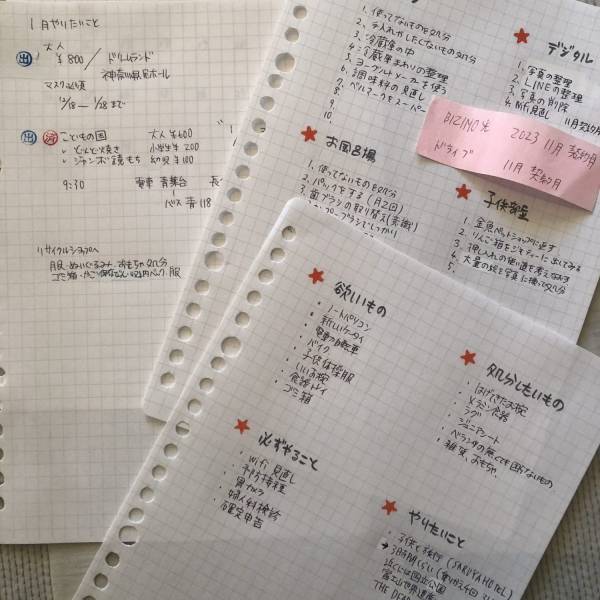 1月やりたいこと
出
大人
¥800/ドリームランド
神奈川県民ホール
マスク必須
12/18〜1/28まで
出 済 こどもの国 大人¥600
・どんど焼き 小学生¥200
・ジャンボ鏡もち 幼児¥100
9:30 電車 青葉台
バス 青118
リサイクルショップへ
服・ぬいぐるみ・おもちゃ処分
1. 使ってないものを処分
2. 手入れがしたくないもの処分
3. 冷蔵庫の中
4. 冷蔵庫まわりの整理
5. ヨーグルトメーカーを使う
6. 調味料の見直し
7. ベルマークをスーパー
8.
9.
10.
★ デジタル
1. 写真の整理
2. LINEの整理
3. 写真の削除
4. Wifi見直し
11月契約
2023 11月契約月
ドライブ 11月 契約月
★ お風呂場
1. 使ってないものを処分
2. パックをする(月2回)
3. 歯ブラシの取り替え
★ 子供部屋
1. 金魚ペットショップに返す
2. りんご箱をジモティーに出してみる
3. 押し入れの使い道を考えなおす
4. 大量の絵を写真に撮って処分
5.
★ 欲しいもの
・ノートパソコン
・新しいケータイ
・電動自転車
・バイク
・子供体操服
・いいお椀
・食器トレイ
・ゴミ箱
★ 処分したいもの
・はげてきたお椀
・メラミン食器
・ラグ
・ジュニアシート
・ベランダの無くても困らないもの
・雑貨、おもちゃ
★ 必ずやること
・wifi見直し
・予防接種
・胃カメラ
・婦人科検診
・確定申告
★ やりたいこと
・子供と旅行(SARUYA HOTEL)
→3時間くらい
近くには国定公園
富士山世界遺産
THE DEAR